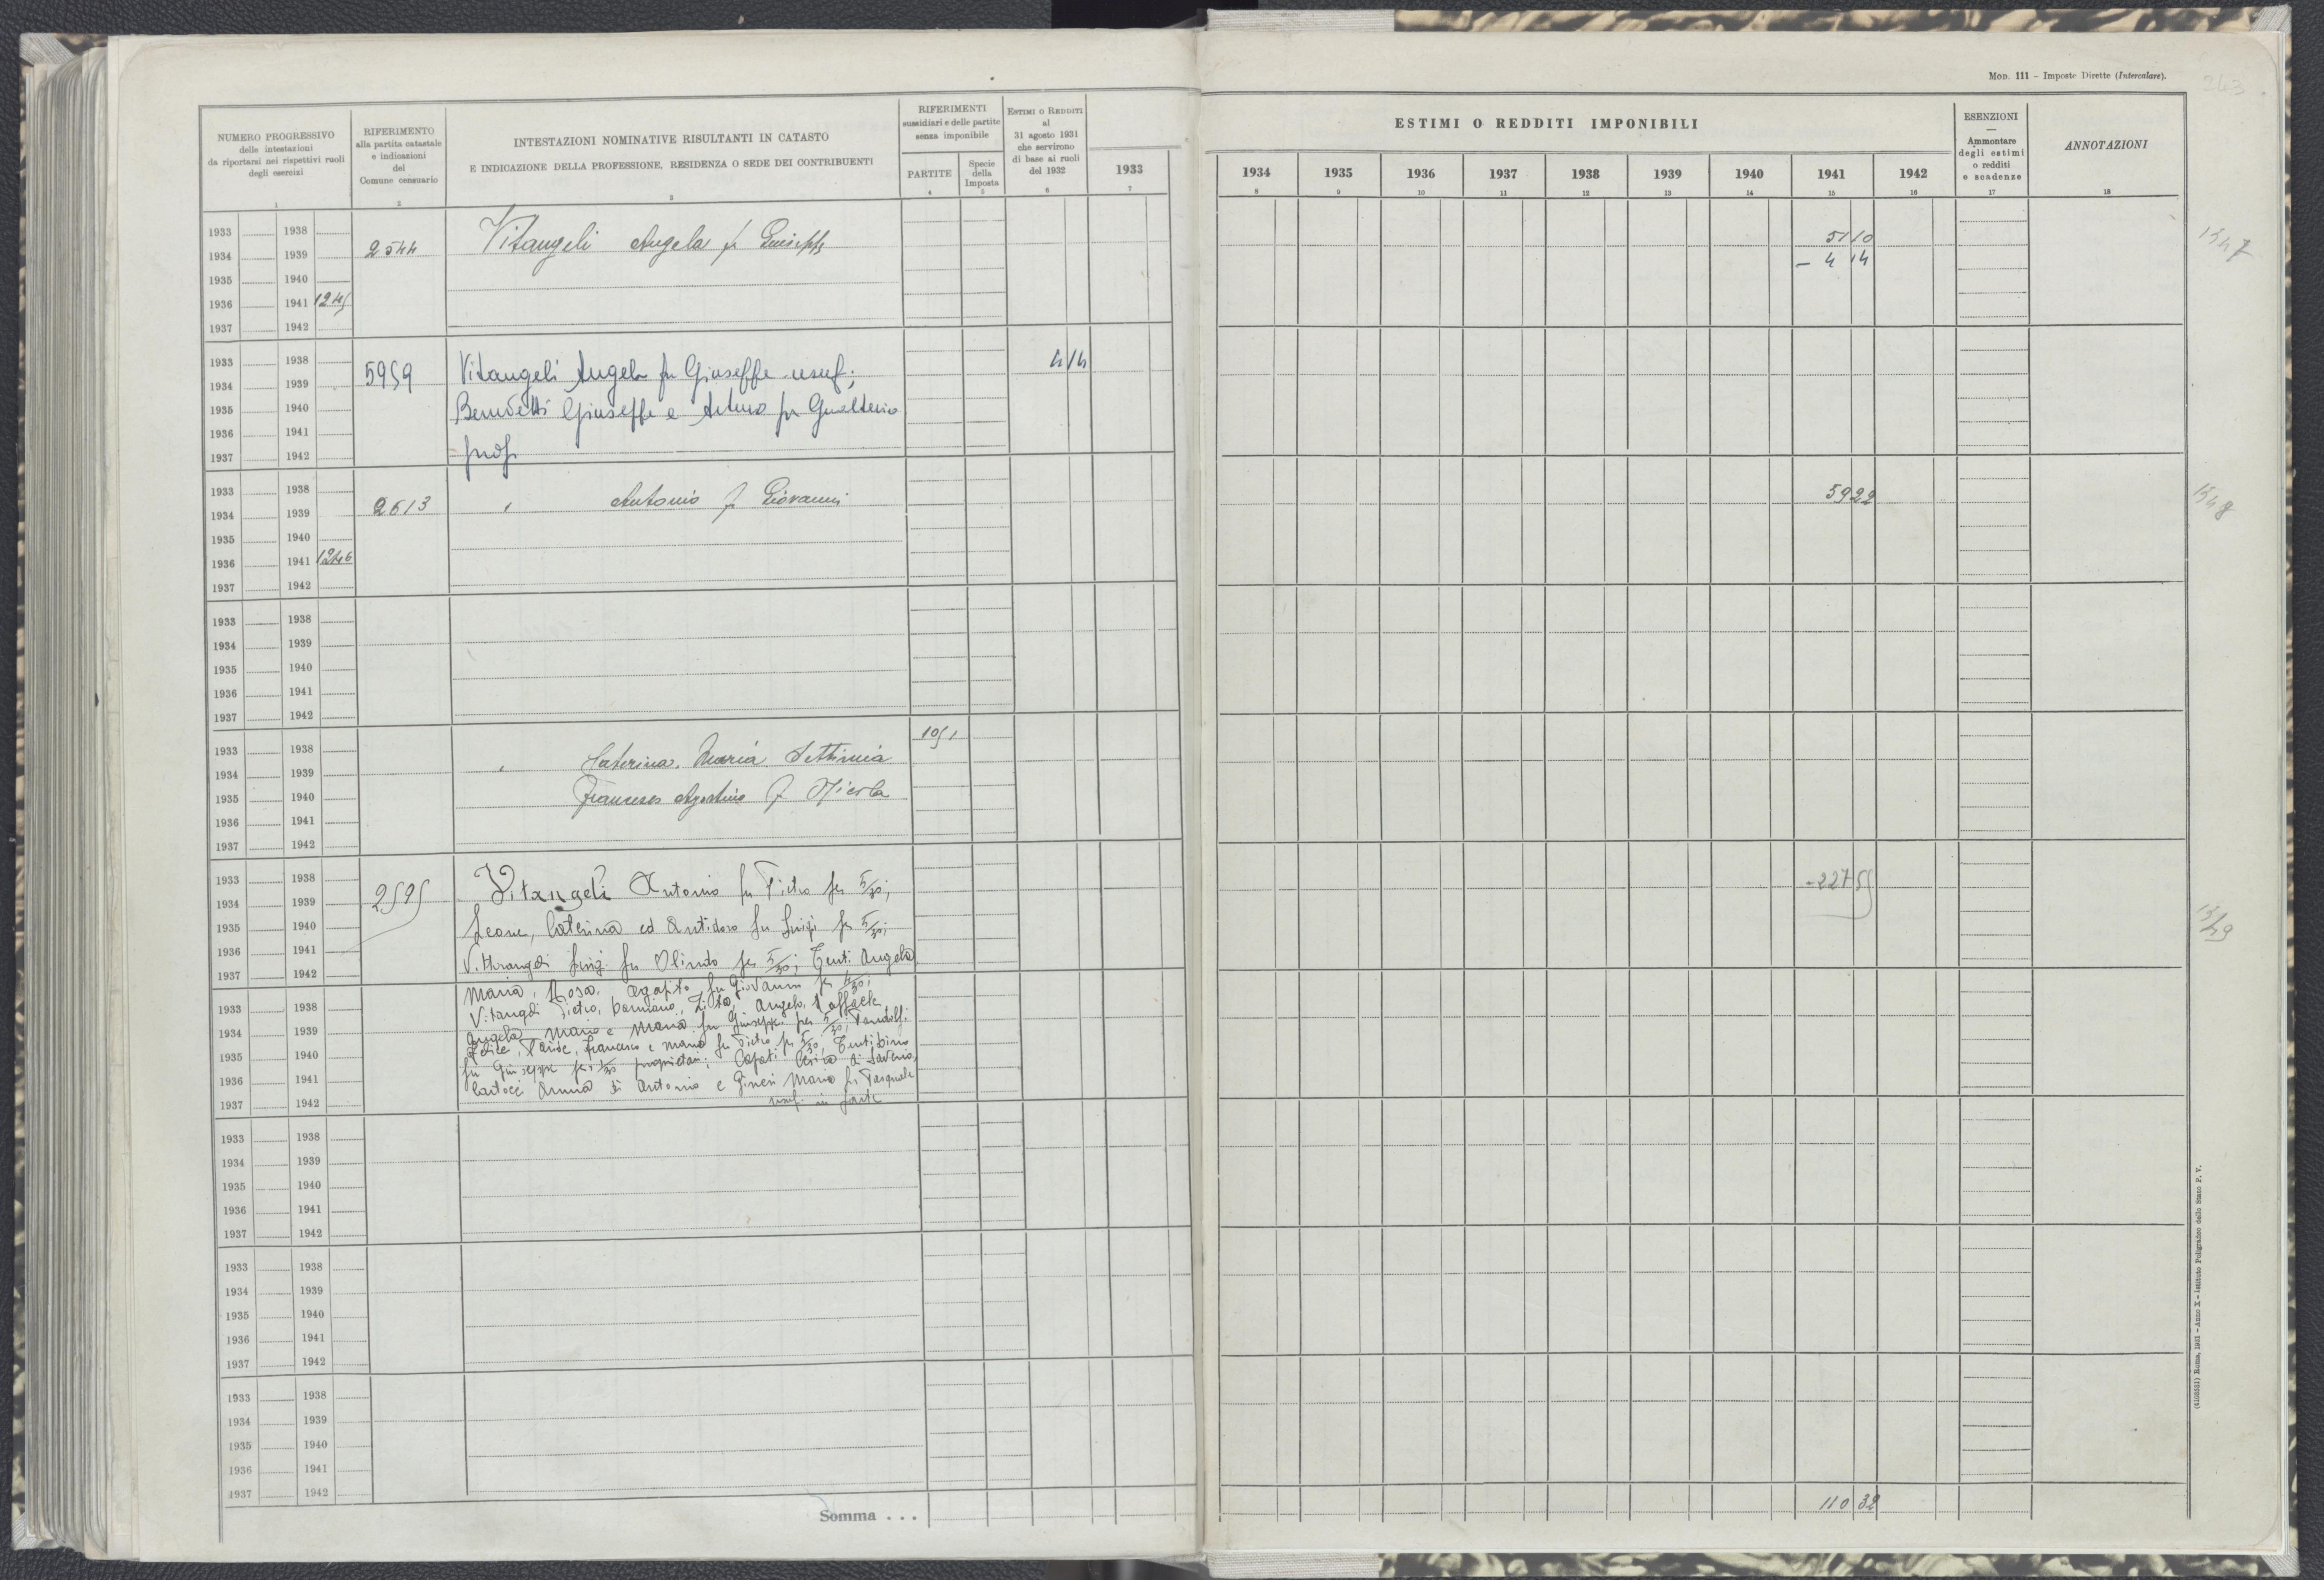 MOD. 111 – Imposte Dirette (Intercalare).
243
NUMERO PROGRESSIVO
delle intestazioni
da riportarsi nei rispettivi ruoli
degli esercizi
1
RIFERIMENTO
alla partita catastale
e indicazioni
del
Comune censuario
2
INTESTAZIONI NOMINATIVE RISULTANTI IN CATASTO
E INDICAZIONE DELLA PROFESSIONE, RESIDENZA O SEDE DEI CONTRIBUENTI
3
RIFERIMENTI
sussidiari e delle partite
senza imponibile
PARTITE
4
Specie
della
Imposta
5
ESTIMI O REDDITI
al
31 agosto 1931
che servirono
di base ai ruoli
del 1932
6
1933
7
ESTIMI O REDDITI IMPONIBILI
1934 1935 1936 1937 1938 1939 1940 1941 1942
8 9 10 11 12 13 14 15 16
ESENZIONI
—
Ammontare
degli estimi
o redditi
e scadenze
17
ANNOTAZIONI
18
1933 1938
1934 1939
1935 1940
1936 1941 1245
1937 1942
2544
Vitangeli Angela fu Giuseppe
51 10
– 4 14
1547
1933 1938
1934 1939
1935 1940
1936 1941
1937 1942
5959
Vitangeli Angela fu Giuseppe usuf;
Benedetti Giuseppe e Arturo fu Gualterio
prop
4 14
1933 1938
1934 1939
1935 1940
1936 1941 1246
1937 1942
2613
Antonio fu Giovanni
59 22
1548
1933 1938
1934 1939
1935 1940
1936 1941
1937 1942
1933 1938
1934 1939
1935 1940
1936 1941
1937 1942
Caterina, Maria Settimia
Francesco Agostino fu Nicola
1051
1933 1938
1934 1939
1935 1940
1936 1941
1937 1942
2595
Vitangeli Antonio fu Pietro per 5/30;
Leone, Caterina ed Antidoro fu Luigi per 5/30;
Vittorangeli Luigi fu Olindo per 5/30; Tenti Angela
227 55
1549
1933 1938
1934 1939
1935 1940
1936 1941
1937 1942
Maria, Rosa, Agapito fu Giovanni per
Vitangeli Pietro, Damiano, Zita, Angelo, Raffaele
Angela Mario e Maria fu Giuseppe per 5/30; Pandolfi
Felice, Francesco e Maria fu Pietro per 5/30; Tenti
fu Giuseppe per 1/30 proprietari; di Saverio,
Anna di Antonio e Maria fu Pasquale
usuf. in parte
1933 1938
1934 1939
1935 1940
1936 1941
1937 1942
1933 1938
1934 1939
1935 1940
1936 1941
1937 1942
1933 1938
1934 1939
1935 1940
1936 1941
1937 1942
Somma . . .
110 32
(4103531) Roma, 1931 - Anno X - Istituto Poligrafico dello Stato P. V.